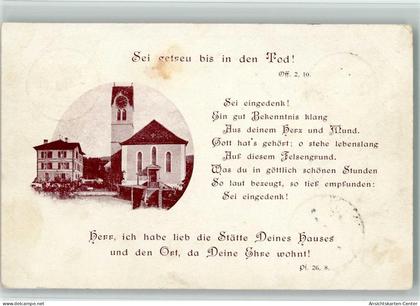 Sei getreu bis in den Tod!
Off. 2, 10.
Sei eingedenk!
Ein gut Bekenntnis klang
Aus deinem Herz und Mund.
Gott hat's gehört; o stehe lebenslang
Auf diesem Felsengrund.
Was du in göttlich schönen Stunden
So laut bezeugt, so tief empfunden:
Sei eingedenk!
Herr, ich habe lieb die Stätte Deines Hauses
und den Ort, da Deine Ehre wohnt!
Pf. 26, 8.
www.ansichtskarten-center.de
Ansichtskarten-Center